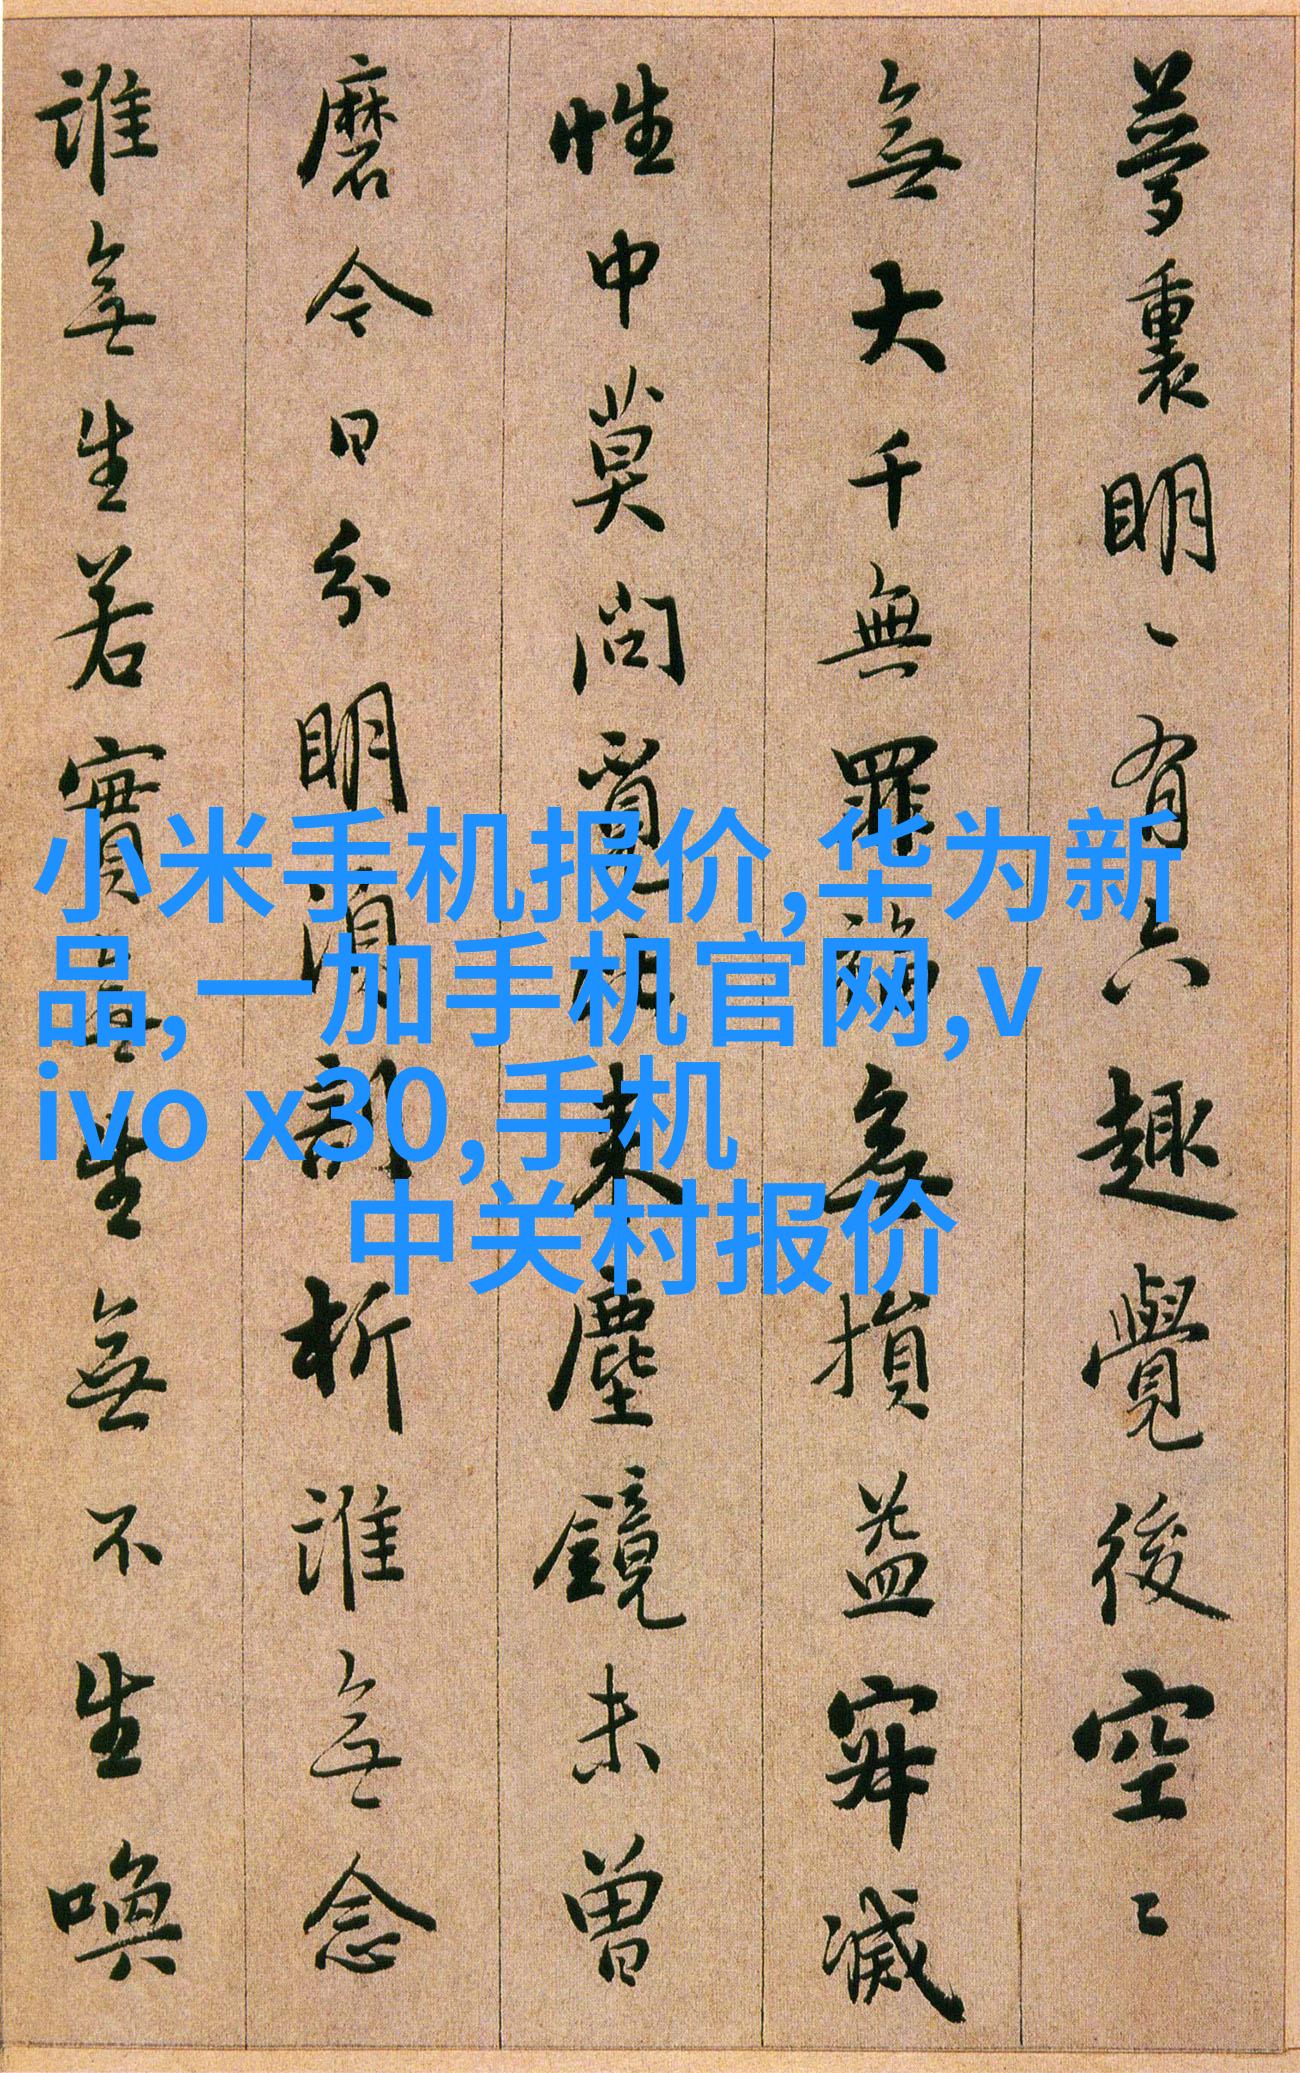 夢裏明〻有六趣覺後空〻
無大千無罪福無損益寂滅
性中莫問覓比来塵鏡未曾
磨今日分明須剖析誰無念
誰無生若實無生無不生喚
小米手机报价,华为新
品,一加手机官网,v
ivo x30,手机
中关村报价